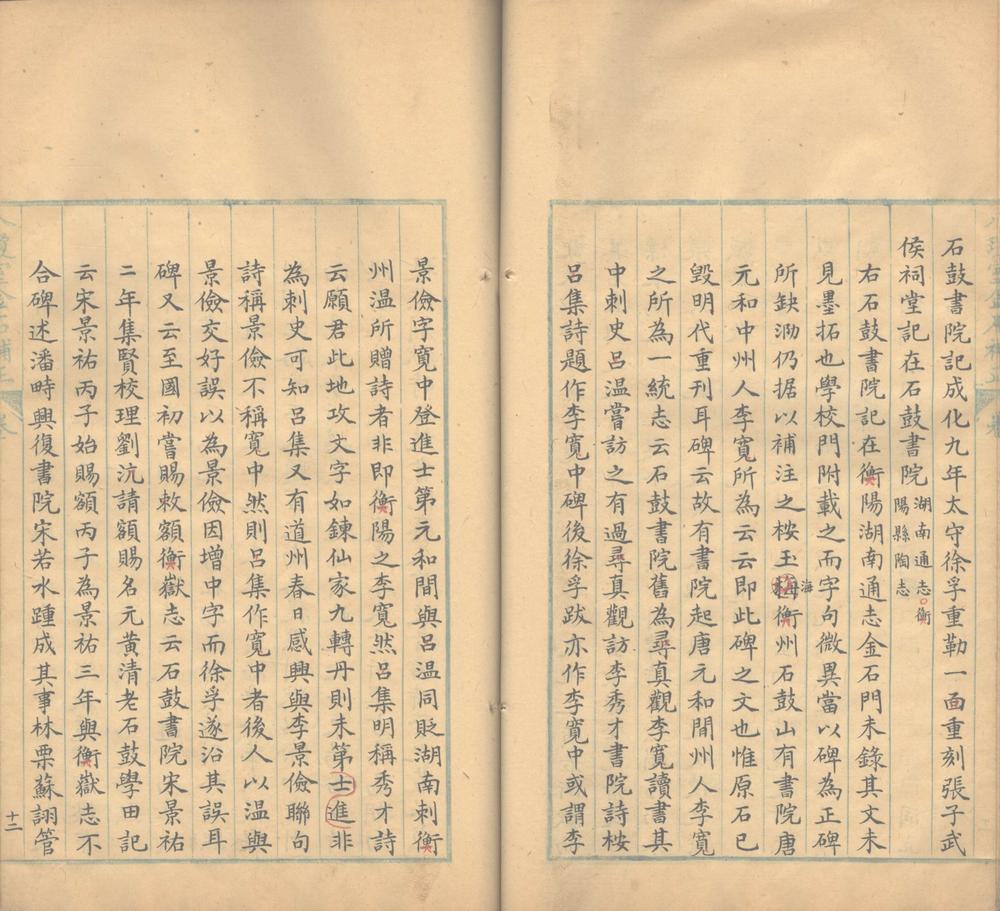 石鼓書院記成化九年太守徐孚重勒一面重刻張子武
侯祠堂記在石鼓書院
湖南通志衡
陽縣陶志
右石鼓書院記在衡陽湖南通志金石門未錄其文未
見墨拓也學校門附載之而字句微異當以碑為正碑
所缺泐仍据以補注之桉玉
海
衡州石鼓山有書院唐
元和中州人李寬所為云云即此碑之文也惟原石已
毀明代重刊耳碑云故有書院起唐元和間州人李寬
之所為一統志云石鼓書院舊為尋真觀李寬讀書其
中刺史呂温嘗訪之有過尋真觀訪李秀才書院詩桉
呂集詩題作李寬中碑後徐孚跋亦作李寬中或謂李
景儉字寬中登進士第元和間與呂温同貶湖南刺衡
州温所贈詩者非即衡陽之李寬然呂集明稱秀才詩
云願君此地攻文字如鍊仙家九轉丹則未第士進非
為刺史可知呂集又有道州春日感興與李景儉聯句
詩稱景儉不稱寬中然則呂集作寬中者後人以温與
景儉交好誤以為景儉因增中字而徐孚遂沿其誤耳
碑又云至國初嘗賜敕額衡嶽志云石鼓書院宋景祐
二年集賢校理劉沆請額賜名元黃清老石鼓學田記
云宋景祐丙子始賜額丙子為景祐三年與衡嶽志不
合碑述潘畤興復書院宋若水踵成其事林栗蘇詡管
十二